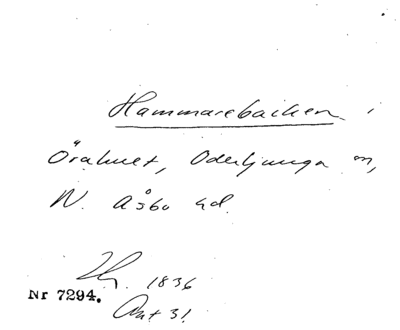 Hammarebacken i
Örahult, Oderljunga sn,
N. Åsbo hd.
1836
Nr 7294.
Akt 31